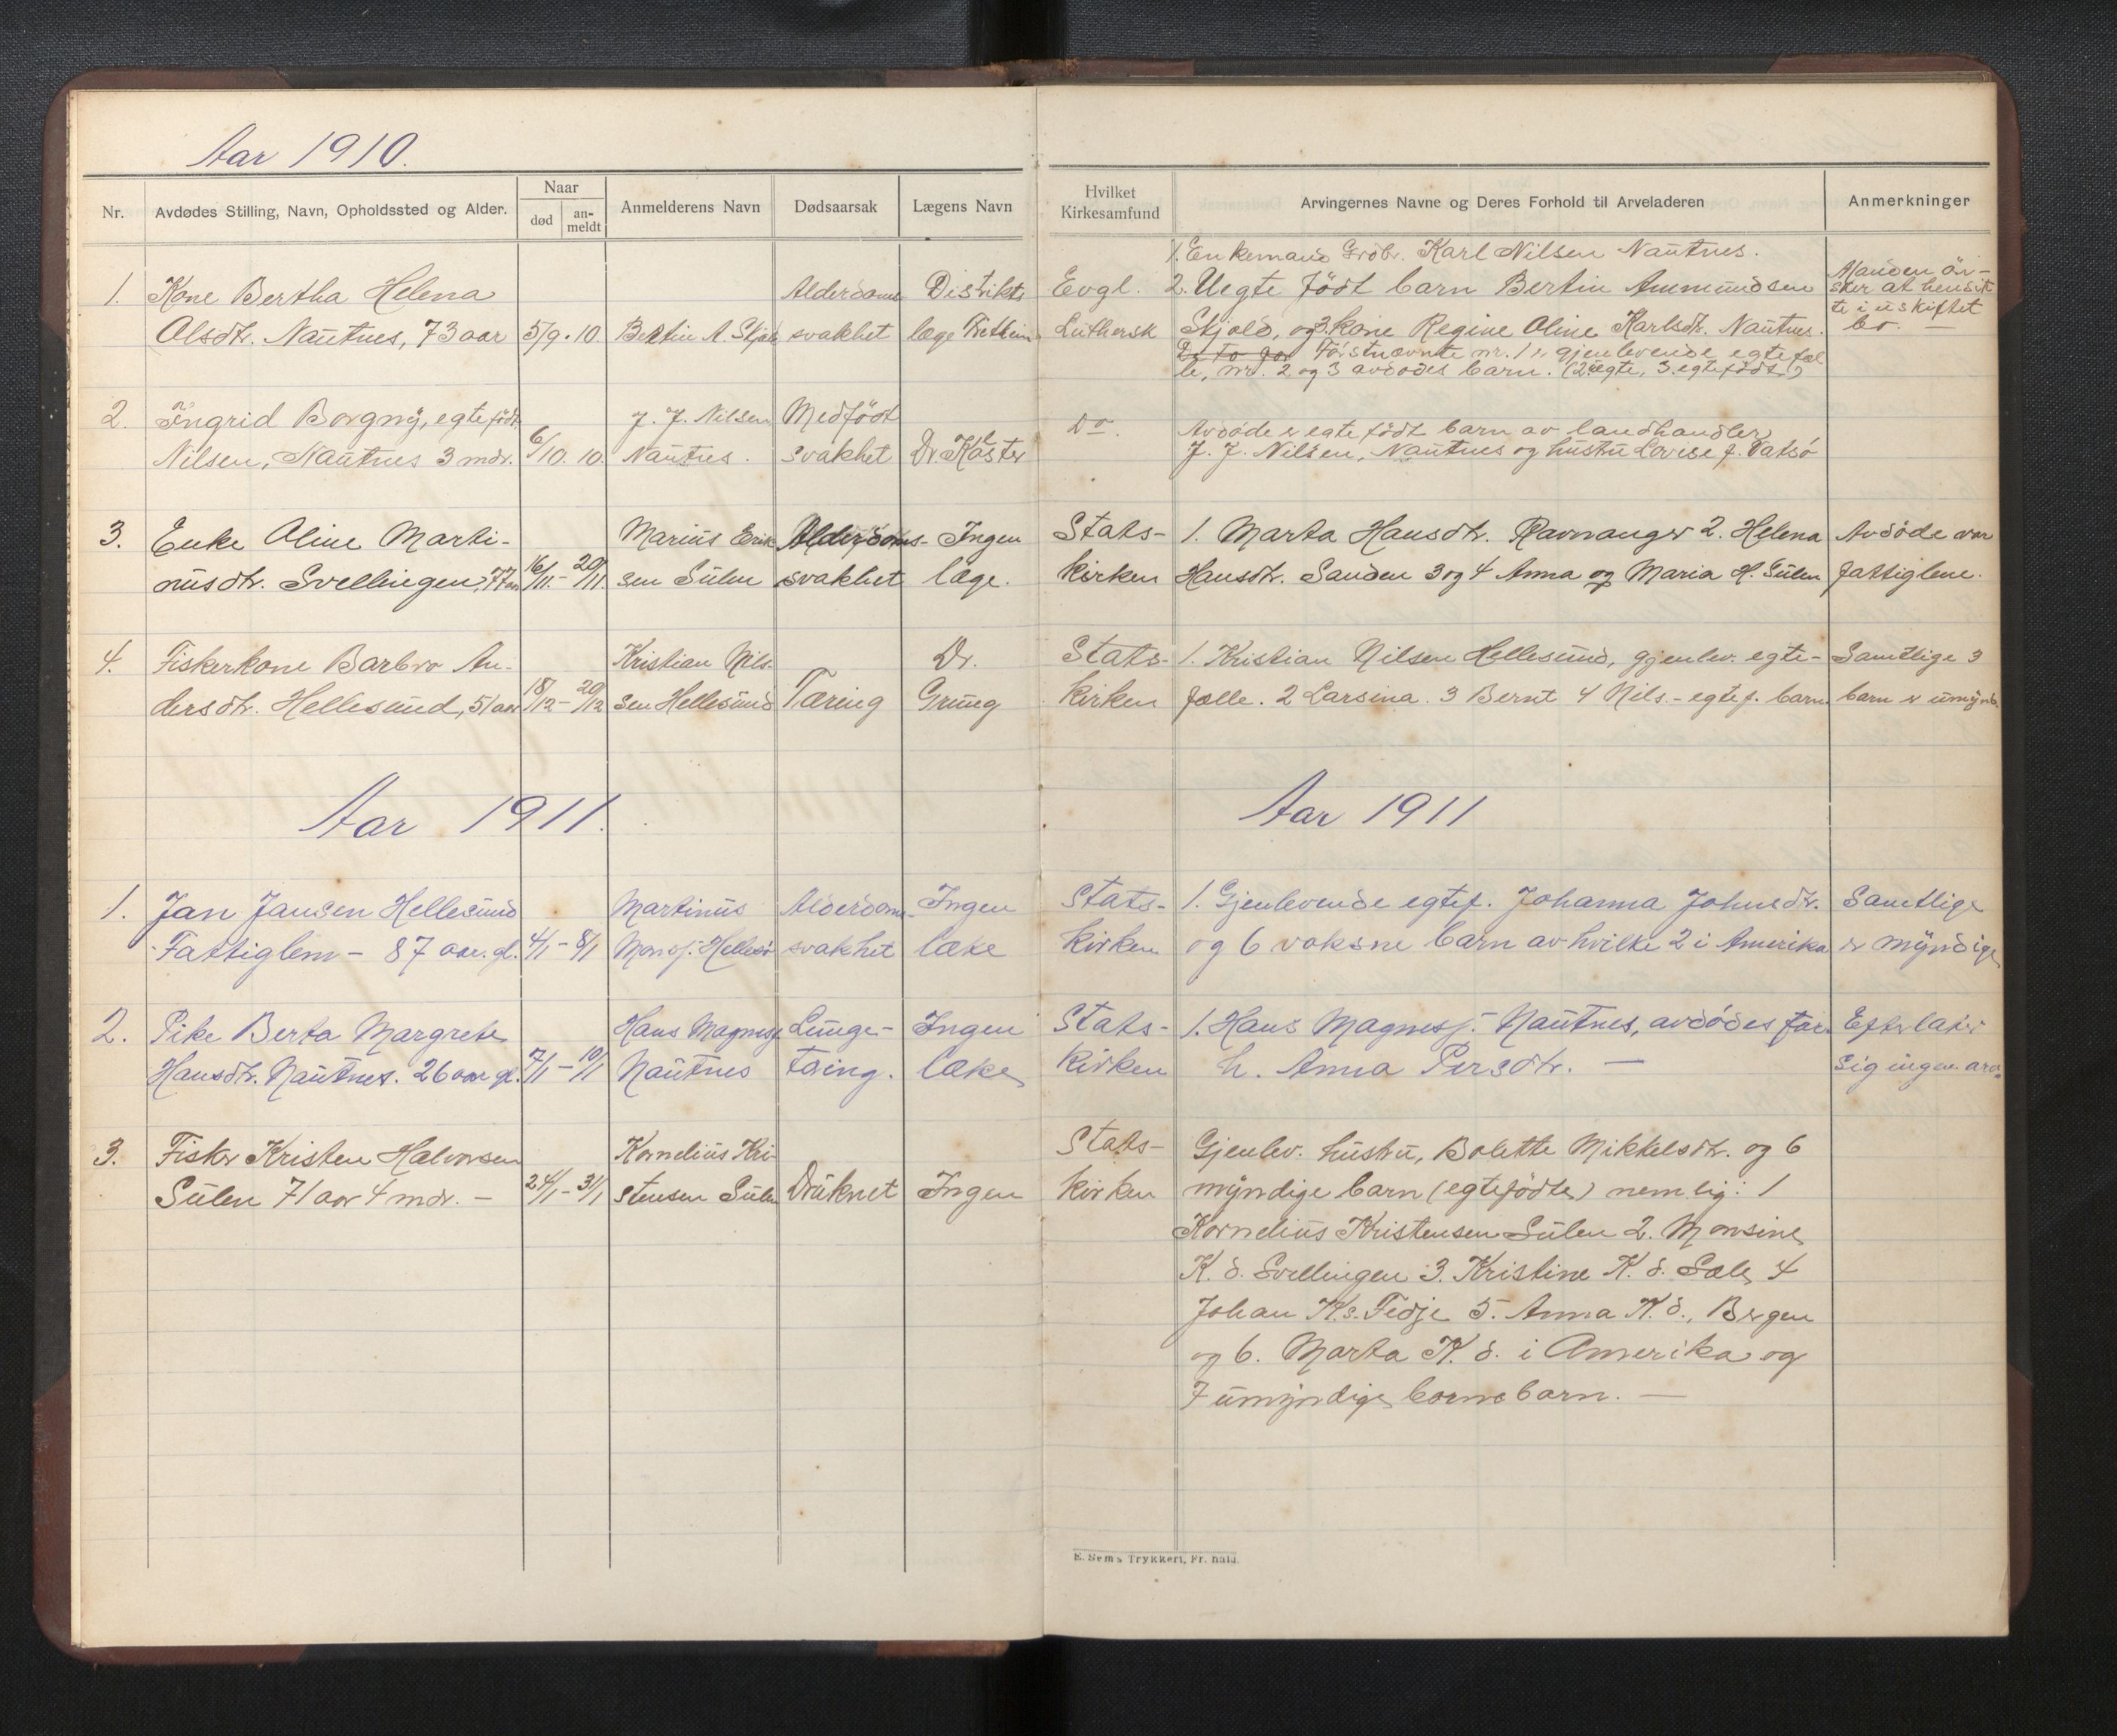 Aar 1910.
Nr.
Avdødes Stilling, Navn, Opholdssted og Alder.
Naar
død
an-
meldt
Anmelderens Navn
Dødsaarsak
Lægens Navn
Hvilket
Kirkesamfund
Arvingernes Navne og Deres Forhold til Arveladeren
Anmerkninger
1. Kone Bertha Helena
Olsdtr. Nautnes, 73 aar
5/9. 10.
Bertin A. Skjold
Alderdoms
svakhet
Distrikts
læge
Evgl.
Luthersk
1. Enkemand Grdbr. Karl Nilsen Nautnes.
2. Uegte födt barn Bertin Ammundsen
Skjold, og 3. kone Regine Oline Karlsdtr. Nautnes.
De to før Förstnævnte nr. 1 er gjenlevende egtefæl
le, nr. 2 og 3 avdødes barn. (2 uegte, 3. egtefödt)
Manden ön-
sker at hensit
te i uskiftet
bo. —
2. Ingrid Borgny, egtefödt
Nilsen, Nautnes 3 mdr.
6/10. 10.
J. J. Nilsen
Nautnes.
Medfödt
svakhet
Dr Kaster
Do.
Avdøde er egte födt barn av landhandler
J. J. Nilsen, Nautnes og hustru Lovise f. Vatsö
3. Enke Oline Marti-
nusdtr. Svellingen, 77 aar
16/11. - 20/11.
Marius Erik
sen Sulen
Alderdoms-
svakhet
Ingen
læge.
Stats-
kirken
1. Marta Hansdtr. Ravnanger 2. Helena
Hansdtr. Sanden 3 og 4 Anna og Maria H. Sulen
Avdøde var
fattiglem.
4. Fiskerkone Barbro An-
dersdtr. Hellesund, 51 aar
18/12 - 20/12
Kristian Nils-
sen Hellesund
Tæring
Dr.
Grung
Stats-
kirken
1. Kristian Nilsen Hellesund, gjenlev. egte-
fælle. 2 Larsina. 3 Bernt 4 Nils. - egtef. barn.
Samtlige 3
barn er umynd.
Aar 1911.
Aar 1911
1. Jan Jansen Hellesund
Fattiglem - 87 aar. gl.
4/1 - 8/1
Martinus
Monsj. Hellesö
Alderdoms-
svakhet
Ingen
læke
Stats-
kirken
1. Gjenlevende egtef. Johanna Johnsdtr.
og 6 voksne barn av hvilke 2 i Amerika
Samtlige
er myndige
2. Pike Berta Margrete
Hansdtr. Nautnes. 26 aar gl.
7/1 - 10/1
Hans Magnesj.
Nautnes
Lunge-
tæing.
Ingen
læke
Stats-
kirken
1. Hans Magnesj. Nautnes, avdödes far
h. Anna Persdtr. —
Efterlater
sig ingen arv.
3. Fisker Kristen Halvorsen
Sulen 71 aar 4 mdr. -
24/1 - 31/1
Kornelius Kri-
stensen Sulen
Druknet
Ingen
Stats-
kirken
Gjenlev. hustru, Bolette Mikkelsdtr. og 6
myndige barn (egtefödte) nemlig: 1
Kornelius Kristensen Sulen 2. Monsine
K. d. Svellingen 3. Kristine K. d. Sæle 4
Johan K.s. Fedje 5. Anna K. d., Bergen
og 6. Marta K. d. i Amerika og
7 umyndige barnebarn. —
E. Sem's Trykkeri, Fr. hald.